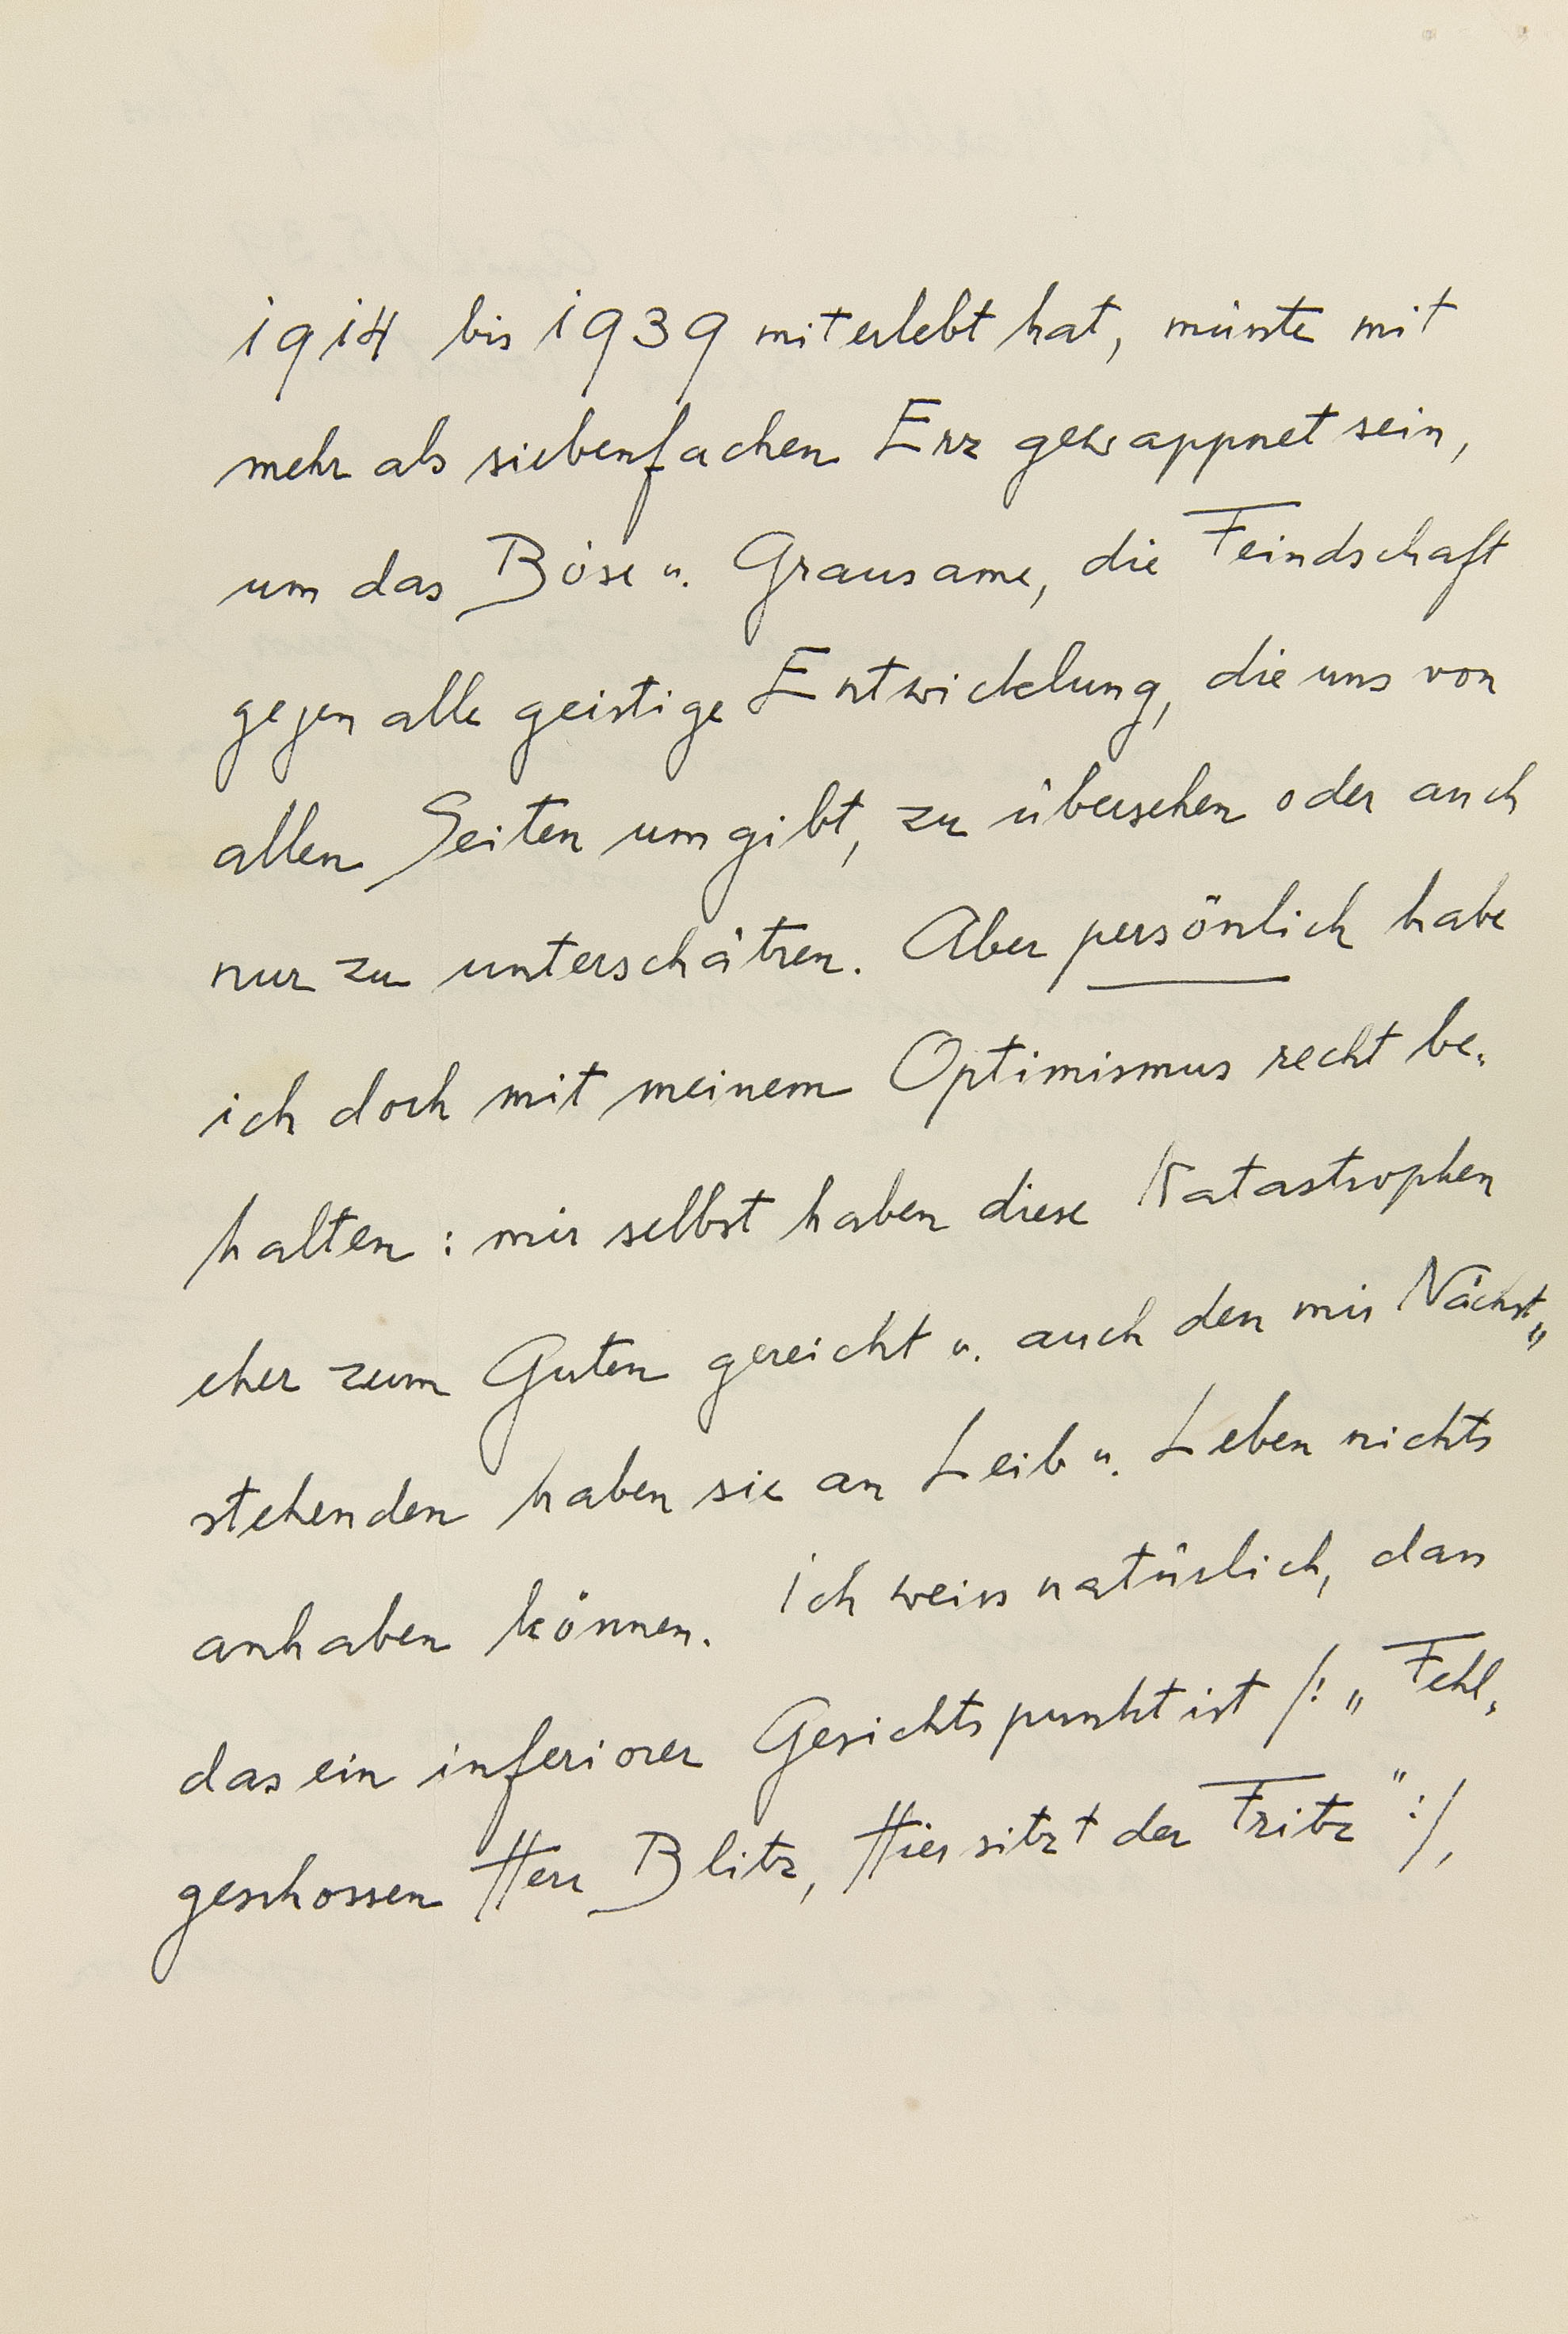 1914 bis 1939 miterlebt hat, müsste mit
mehr als siebenfachen Erz gewappnet sein,
um das Böse u. Grausame, die Feindschaft
gegen alle geistige Entwicklung, die uns von
allen Seiten umgibt, zu übersehen oder auch
nur zu unterschätzen. Aber persönlich habe
ich doch mit meinem Optimismus recht be-
halten: mir selbst haben diese Katastrophen
eher zum Guten gereicht u. auch den mir Nächst-
stehenden haben sie an Leib u. Leben nichts
anhaben können. Ich weiss natürlich, dass
das ein inferiorer Gesichtspunkt ist /: „Fehl-
geschossen Herr Blitz, Hier sitzt der Fritz" :/,